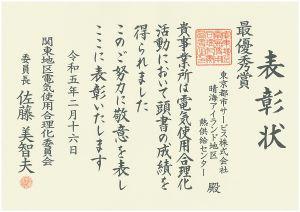 表彰状
最優秀賞
東京都市サービス株式会社
晴海アイランド地区
熱供給センター
殿
貴事業所は電気使用合理化
活動において頭書の成績を
得られました
このご努力に敬意を表し
ここに表彰いたします
令和五年二月十六日
関東地区電気使用合理化委員会
委員長 佐藤美智夫